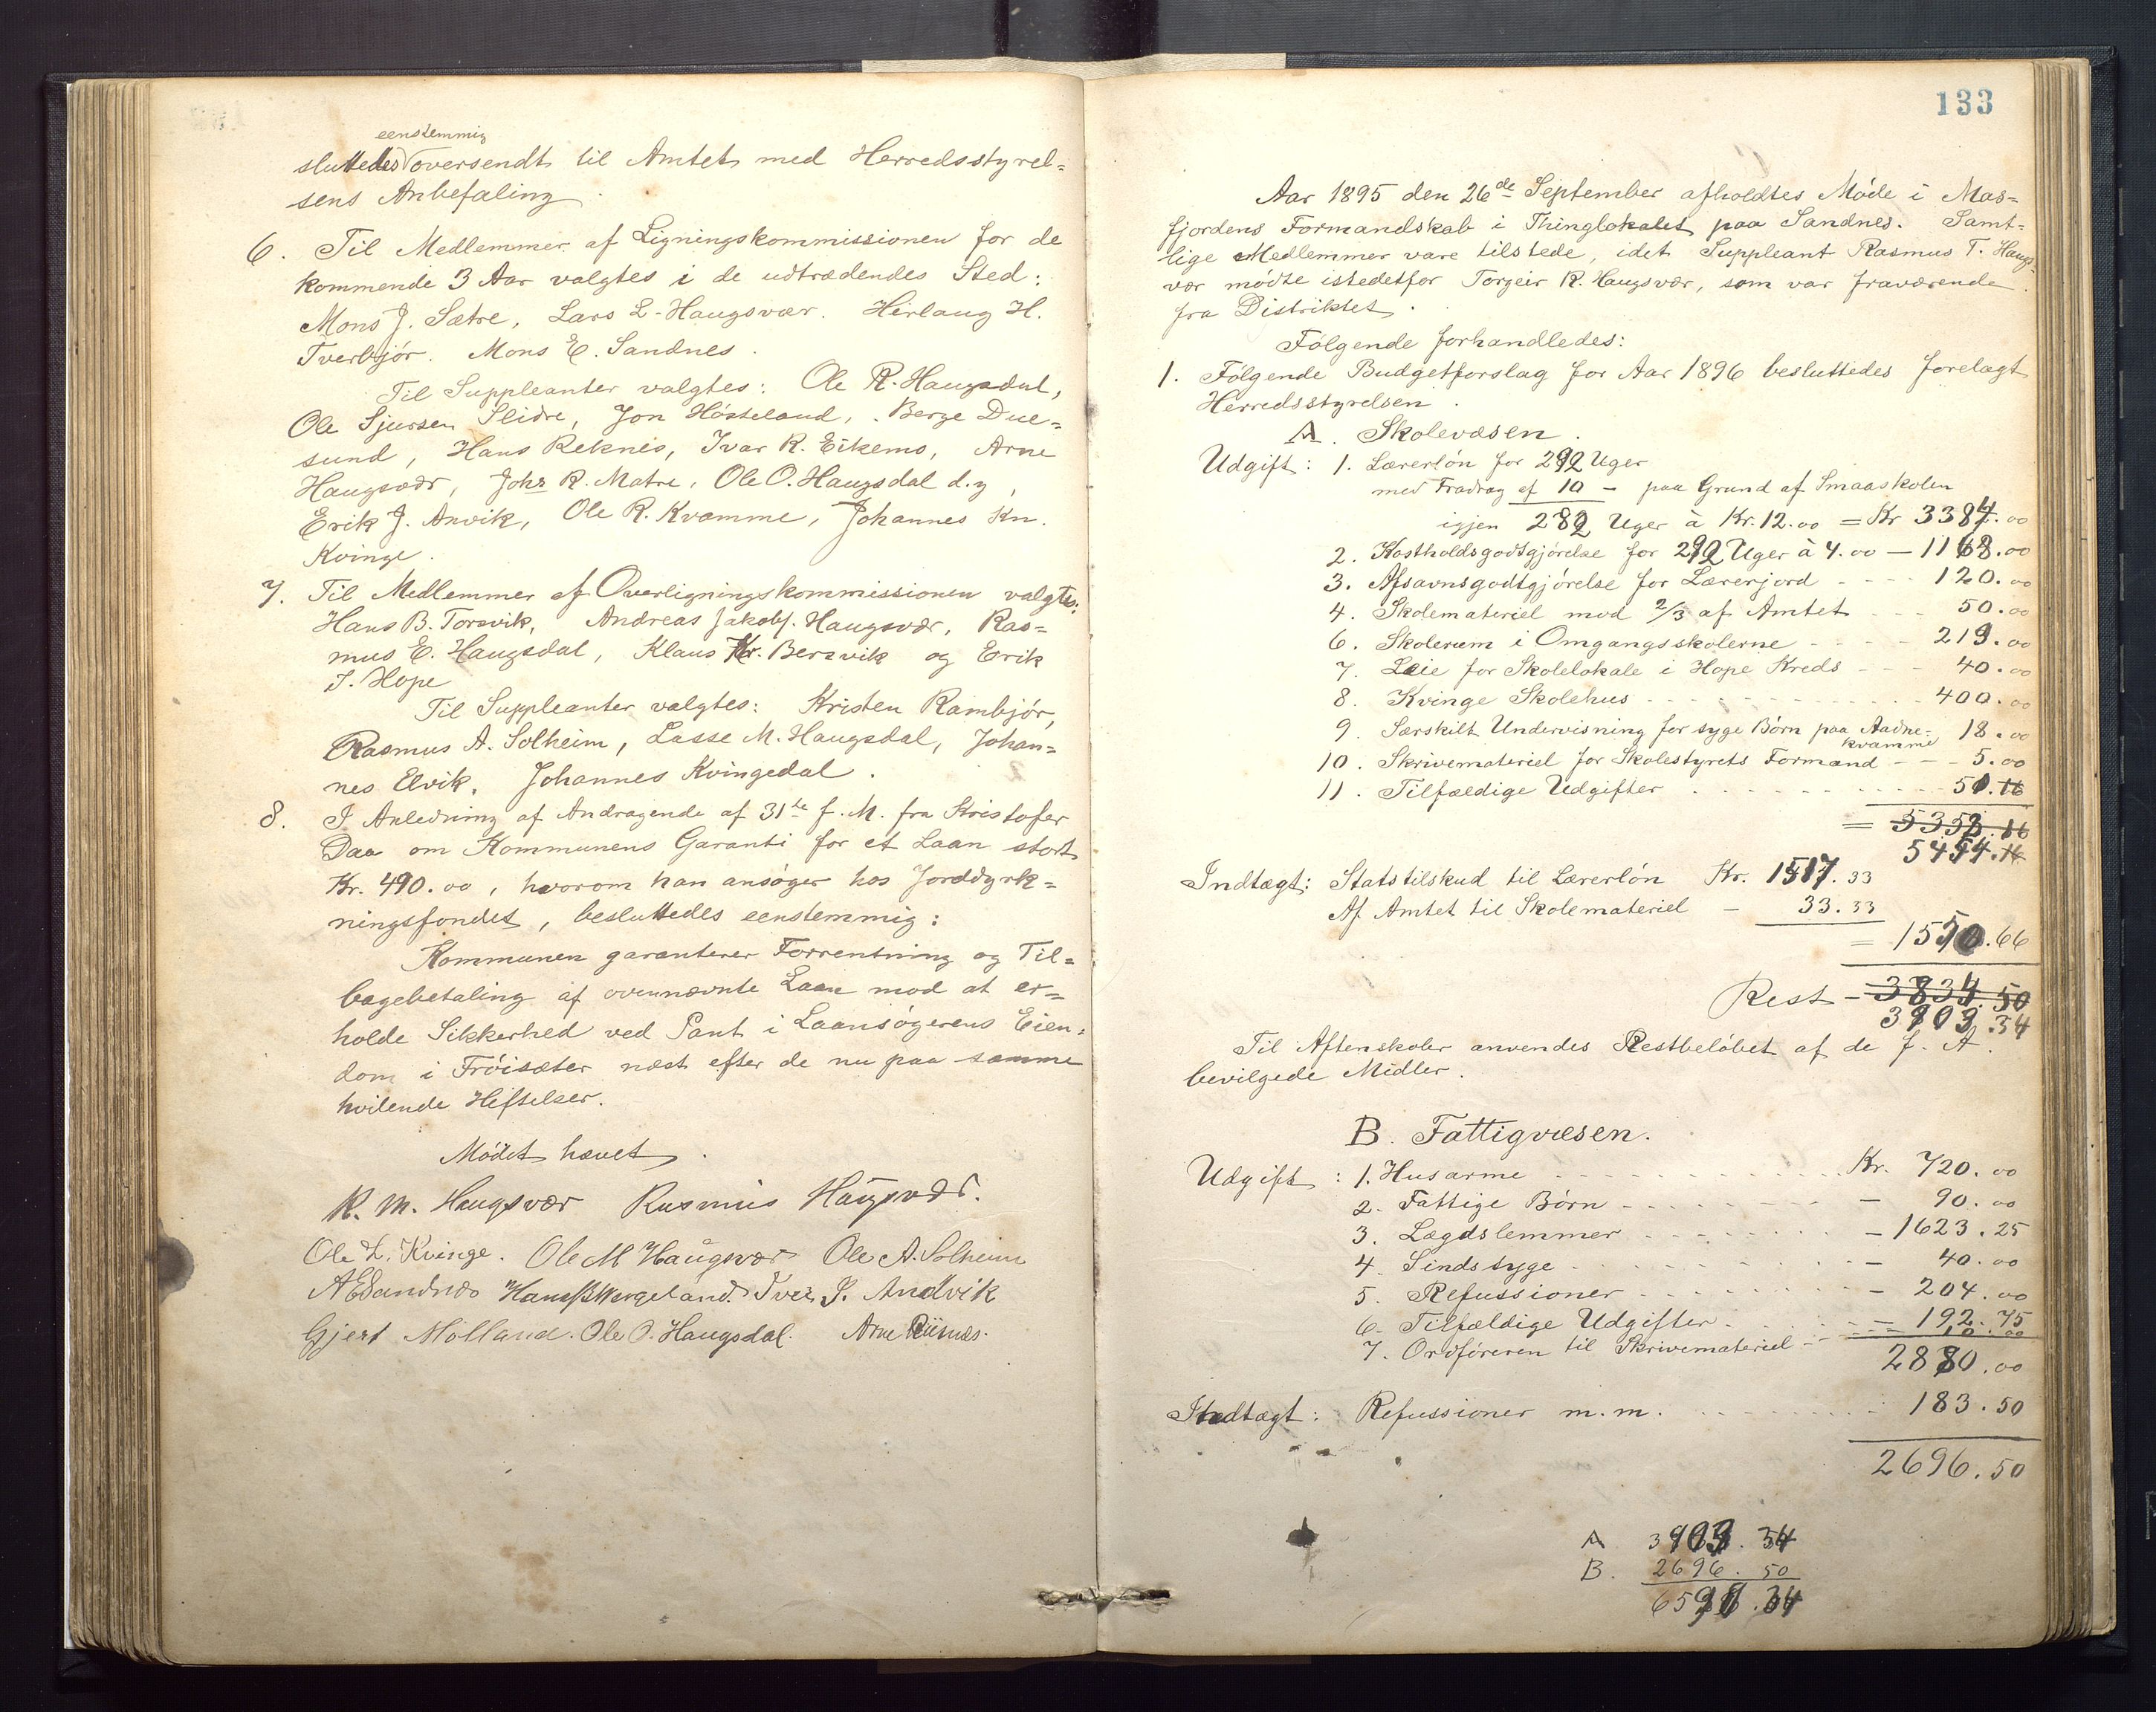 eenstemmig
sluttedes oversendt til Amtet med Herredsstyrel=
sens Anbefaling.
6. Til Medlemmer af Ligningskommissionen for de
kommende 3 Aar valgtes i de udtrædendes Sted:
Mons J. Sætre, Lars L. Haugsvær. Herlaug H.
Tverbjør. Mons E. Sandnes.
Til Suppleanter valgtes: Ole R. Haugsdal,
Ole Sjursen Slidre, Jon Høsteland, Berge Due=
sund, Hans Reknes, Ivar R. Eikemo, Arne
Haugsvær, Johs R. Matre, Ole O. Haugsdal d.y,
Erik J. Anvik, Ole R. Kvamme, Johannes Kn.
Kvinge.
7. Til Medlemmer af Overligningskommissionen valgtes:
Hans B. Torsvik, Andreas Jakobs. Haugsvær, Ras=
mus E. Haugsdal, Klaus Kr. Bersvik og Erik
J. Hope
Til Suppleanter valgtes: Kristen Rambjør,
Rasmus A. Solheim, Lasse M. Haugsdal, Johan=
nes Elvik, Johannes Kvingedal.
8. I Anledning af Andragende af 31te f. M. fra Kristofer
Daa om Kommunens Garanti for et Laan stort
Kr. 490.00, hvorom han ansøger hos Jorddyrk=
ningsfondet, besluttedes eenstemmig:
Kommunen garanterer Forrentning og Til=
bagebetaling af ovennævnte Laan mod at er=
holde Sikkerhed ved Pant i Laansøgerens Eien=
dom i Frøisæter næst efter de nu paa samme
hvilende Heftelser.
Mødet hævet.
R. M. Haugsvær Rasmus Haugsvær.
Ole L. Kvinge. Ole M Haugsvær Ole A. Solheim
A E Sandnes Hans B Wergeland. Iver S. Andvik
Gjert Molland. Ole O. Haugsdal. Arne Riisnæs.
133
Aar 1895 den 26de September afholdtes Møde i Mas=
fjordens Formandskab i Thinglokalet paa Sandnes. Samt=
lige Medlemmer vare tilstede, idet Suppleant Rasmus T. Haugs=
vær mødte istedetfor Torgeir R. Haugsvær, som var fraværende
fra Distriktet.
Følgende forhandledes:
1. Følgende Budgetforslag for Aar 1896 besluttedes forelagt
Herredsstyrelsen.
A. Skolevæsen.
Udgift: 1. Lærerløn for 292 Uger
med Fradrag af 10 - paa Grund af Smaaskolen
igjen 282 Uger à Kr. 12.00 = Kr 3384.00
2. Kostholdsgodtgjørelse for 292 Uger à 4.00 - 1168.00
3. Afsavnsgodtgjørelse for Lærerjord - 120.00
4. Skolemateriel mod 2/3 af Amtet - 50.00
6. Skolerum i Omgangsskolerne - 219.00
7. Leie for Skolelokale i Hope Kreds - 40.00
8. Kvinge Skolehus - 400.00
9. Særskilt Undervisning for syge Børn paa Aadne= 18.00
kvamme
10. Skrivemateriel for Skolestyrets Formand - 5.00
11. Tilfældige Udgifter 50.16
= 5352.16
5454.16
Indtægt: Statstilskud til Lærerløn Kr. 1517.33
Af Amtet til Skolemateriel - 33.33
= 1550.66
Rest - 3834.50
3903.34
Til Aftenskoler anvendes Restbeløbet af de f. A.
bevilgede Midler.
B. Fattigvæsen.
Udgift: 1. Husarme Kr. 720.00
2. Fattige Børn - 90.00
3. Lægdslemmer - 1623.25
4. Sindssyge - 40.00
5. Refussioner - 204.00
6. Tilfældige Udgifter - 192.75
7. Ordføreren til Skrivemateriel - 10.00
2880.00
Indtægt: Refussioner m.m. 183.50
2696.50
A 3903.34
B. 2696.50